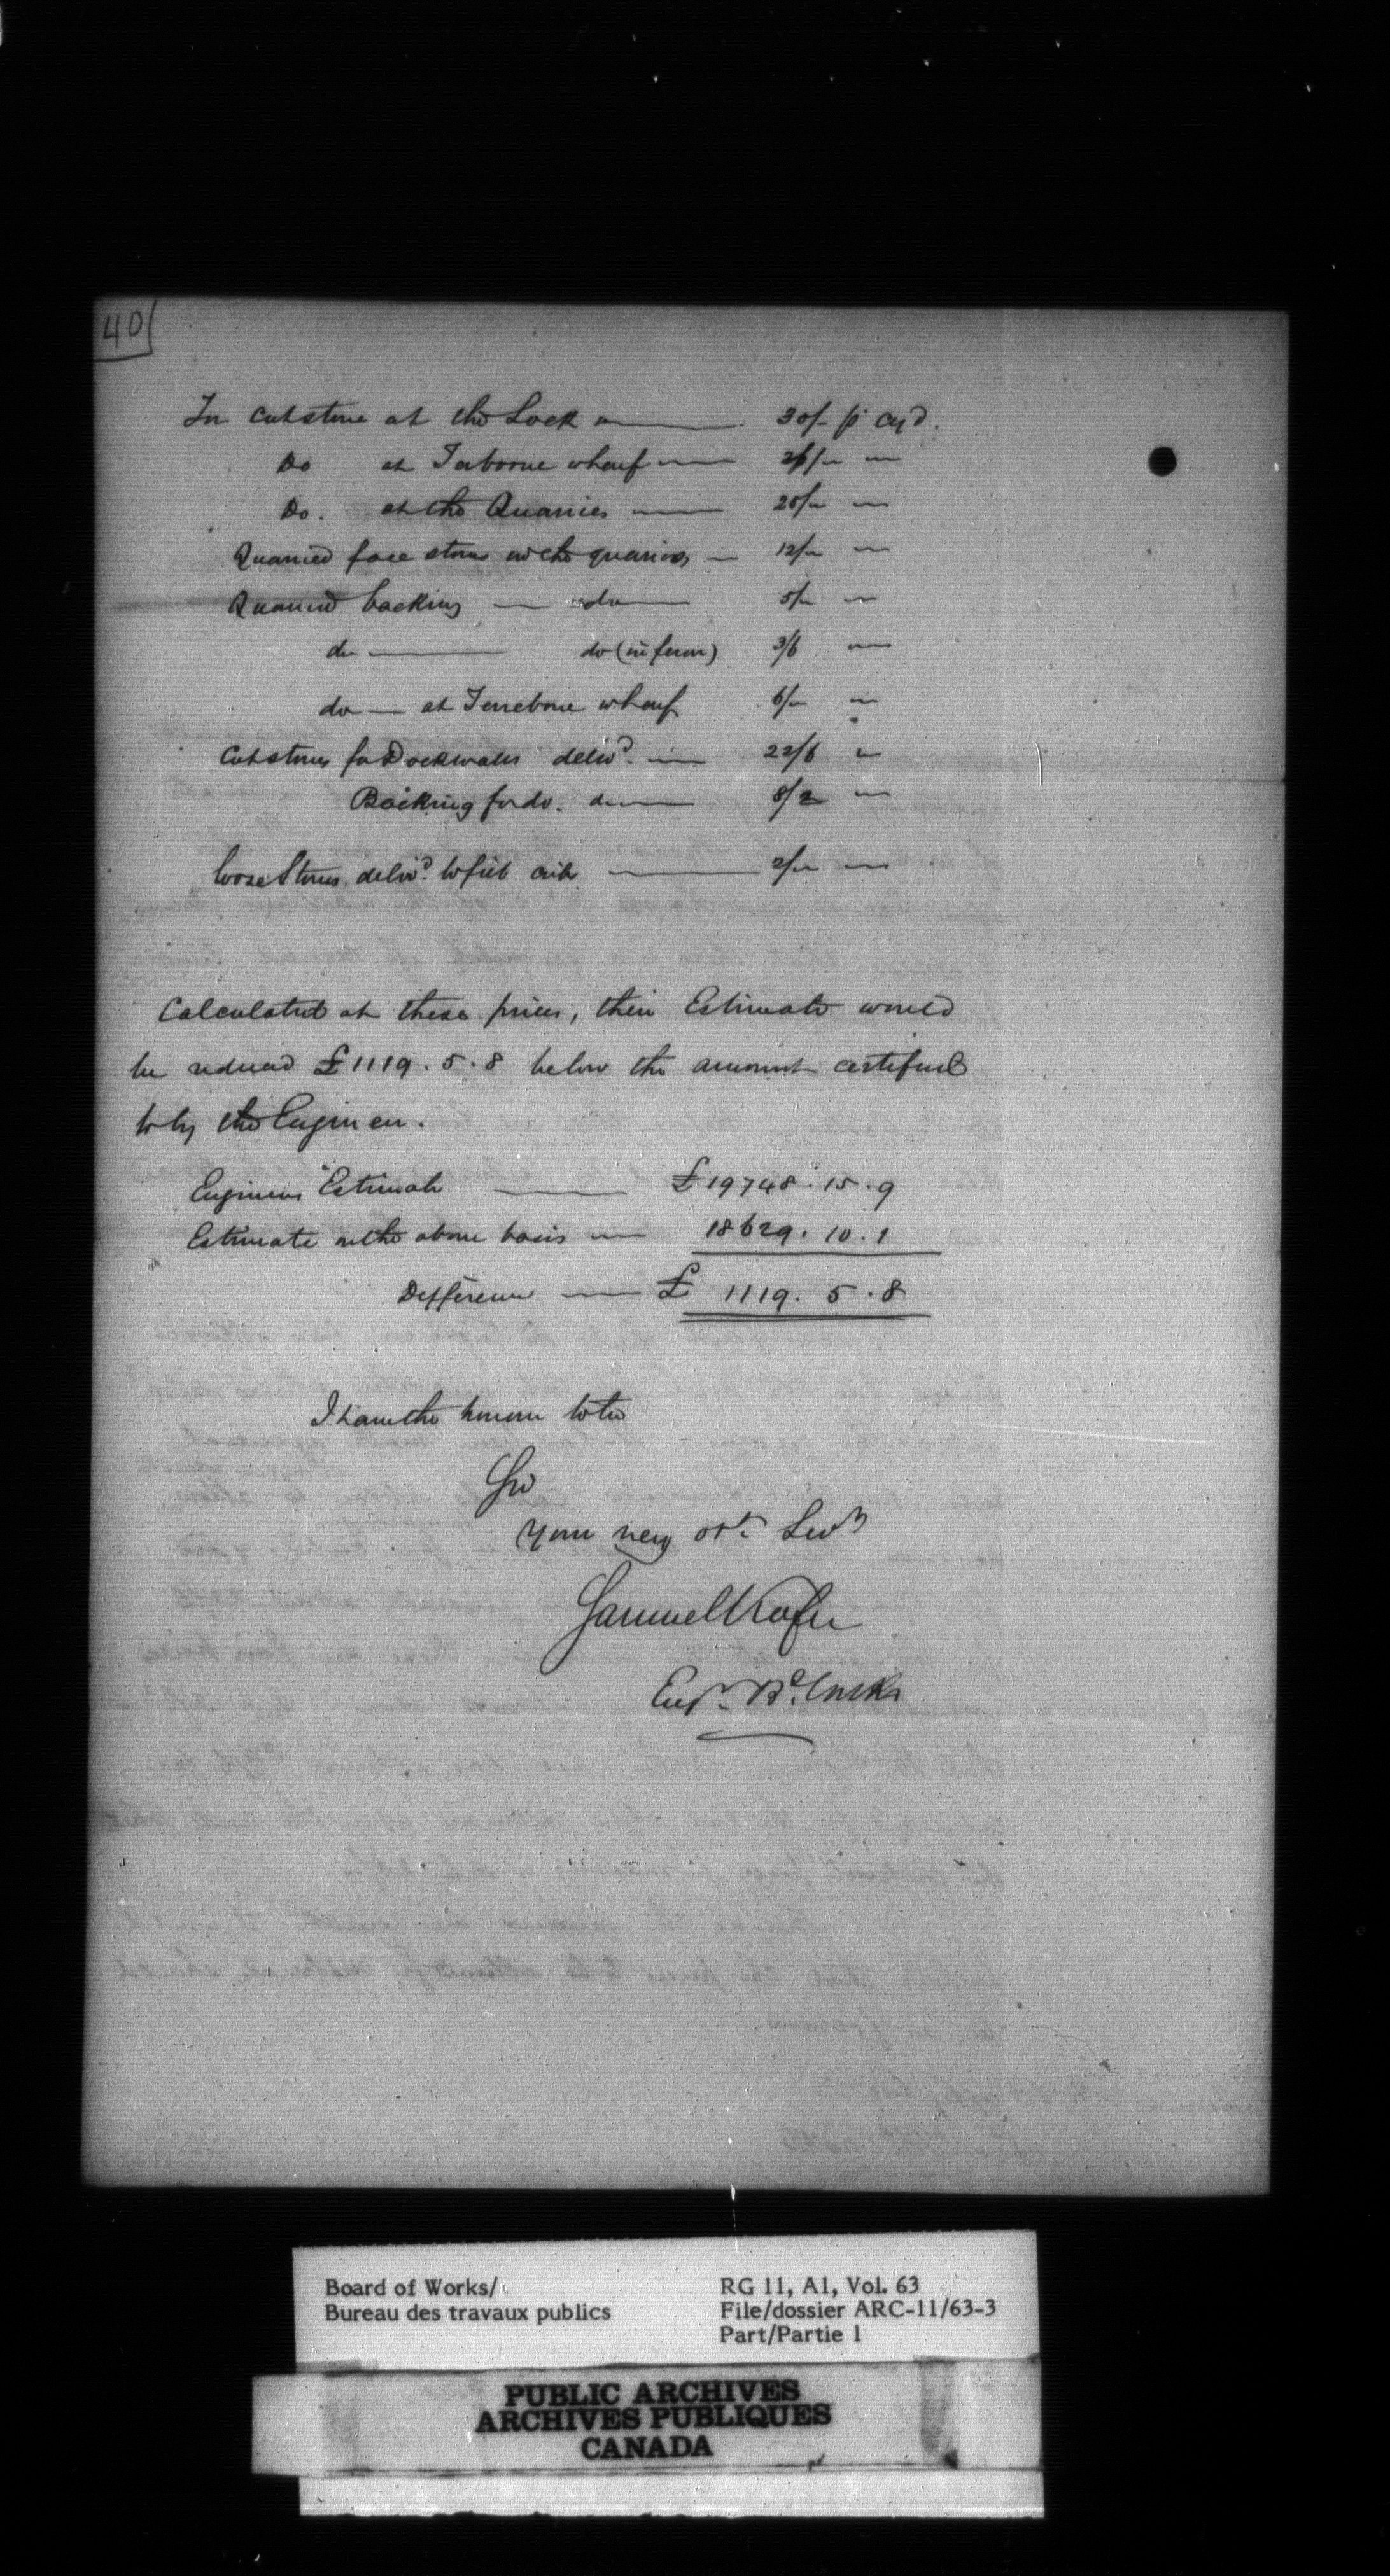 40
For cutstone at the Lock — 30/- p cyd.
Do at Terbonne wharf — 26/- —
Do. at the Quarries — 20/- —
Quarried face stone at the quarries — 12/- —
Quarried backing — do — 5/- —
do — do (inferior) 3/6 —
do — at Terrebone wharf 6/- —
Cutstones for Dockwalls deliv'd. — 22/6 —
Backing for do. do — 8/2 —
loose Stones deliv'd. to fill crib — 2/- —
Calculated at these prices, their Estimate would
be reduced £1119. 5. 8 below the amount certified
to by the Engineer.
Engineers Estimate — £19748. 15. 9
Estimate on the above basis — 18629. 10. 1
Difference — £ 1119. 5. 8
I have the honour to be
Sir
Your very obt. Servt
Samuel Keefer
Engr. Bd. Works
Board of Works/
Bureau des travaux publics
RG 11, A1, Vol. 63
File/dossier ARC-11/63-3
Part/Partie 1
PUBLIC ARCHIVES
ARCHIVES PUBLIQUES
CANADA